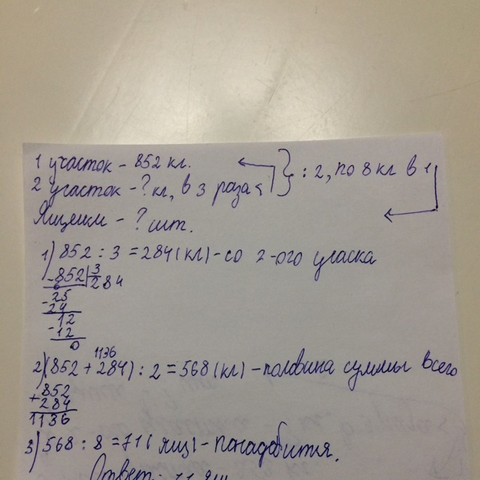 1 участок - 852 кг.
2 участок - ? кг, в 3 раза < } : 2, по 8 кг в 1
Ящики - ? шт.
1) 852 : 3 = 284 (кг) - со 2-ого участка
-852|3
6 284
-25
24
-12
-12
0
1136
2) (852 + 284) : 2 = 568 (кг) - половина суммы всего
+852
284
1136
3) 568 : 8 = 71 (ящ) - понадобится.
Ответ: 71 ящ